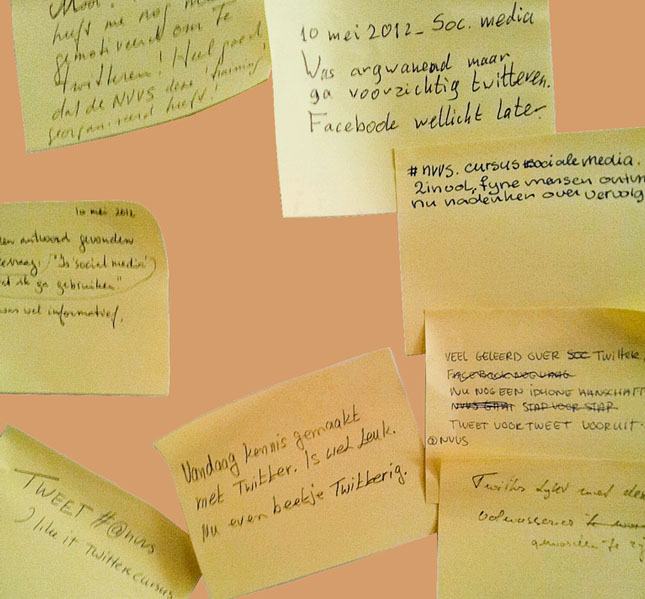 Mooi!
heeft me nog m
gemotiveerd om te
twitteren! Heel goed
dat de NVVS deze training
georganiseerd heeft!
10 mei 2012 - Soc. media
Was argwanend maar
ga voorzichtig twitteren.
Facebook wellicht later.
#nvvs. cursus sociale media.
Zinvol, fijne mensen ontm
nu nadenken over vervolg
10 mei 2012
en antwoord gevonden
vraag: "Is 'social media'
ik ga gebruiken"
was wel informatief.
VEEL GELEERD OVER SOC TWITTER,
NU NOG EEN IPHONE AANSCHAFT
NVVS GAAT STAP VOOR STAP
TWEET VOOR TWEET VOORUIT.
@NVVS
Vandaag kennis gemaakt
met Twitter. Is wel leuk.
Nu even beetje Twitterig.
TWEET #@nvvs
I like it Twittercursus
Twitter met de